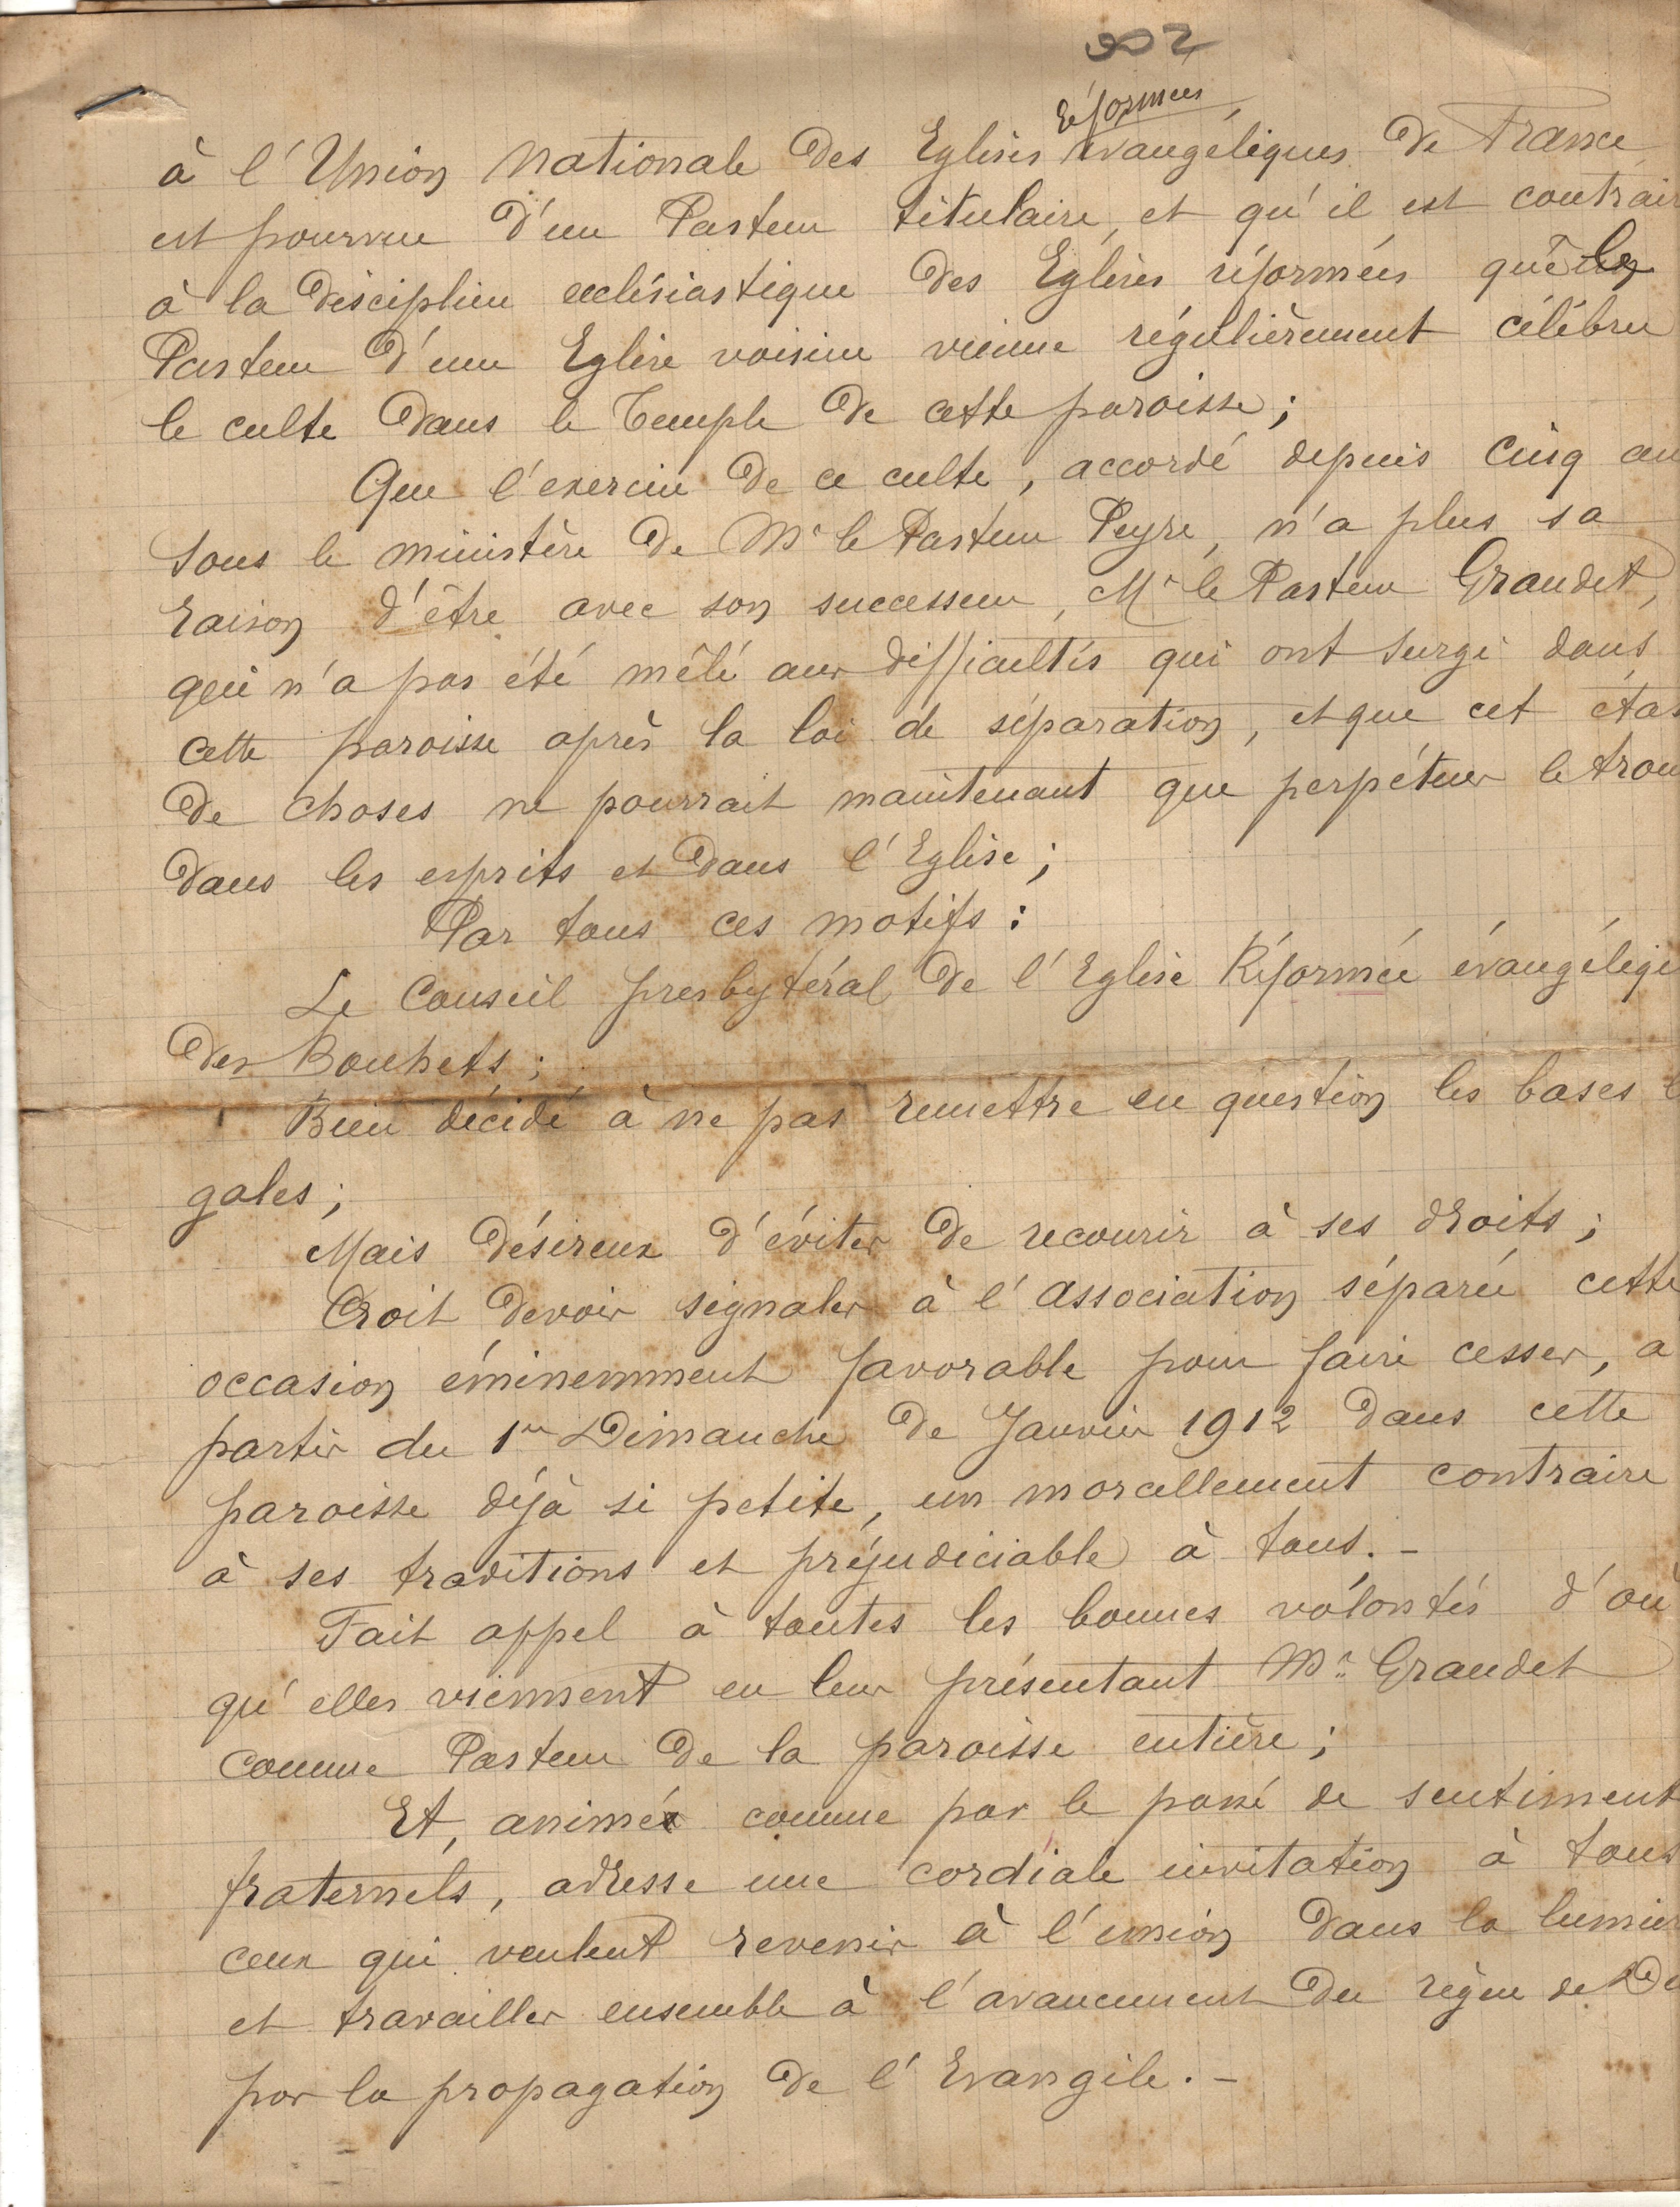 902
réformées
à l'Union Nationale des Eglises évangéliques de France
est pourvue d'un Pasteur titulaire, et qu'il est contrair
à la discipline ecclésiastique des Eglises réformées que le
Pasteur d'une Eglise voisine vienne régulièrement célébrer
le culte dans le Temple de cette paroisse;
Que l'exercice de ce culte, accordé depuis cinq an
sous le ministère de Mr le Pasteur Peyre, n'a plus sa
raison d'être avec son successeur, Mr le Pasteur Graudet,
qui n'a pas été mêlé aux difficultés qui ont surgi dans
cette paroisse après la loi de séparation, et que cet éta
de choses ne pourrait maintenant que perpétuer le trou
dans les esprits et dans l'Eglise;
Par tous ces motifs:
Le Conseil presbytéral de l'Eglise Réformée évangéliq
des Bouhets;
Bien décidé à ne pas remettre en question les bases l
gales;
Mais désireux d'éviter de recourir à ses droits;
Croit devoir signaler à l'association séparée cette
occasion éminemment favorable pour faire cesser, a
partir du 1er Dimanche de Janvier 1912 dans cette
paroisse déjà si petite, un morcellement contraire
à ses traditions et préjudiciable à tous. -
Fait appel à toutes les bonnes volontés d'où
qu'elles viennent en leur présentant Mr Graudet
comme Pasteur de la paroisse entière;
Et, animé comme par le passé de sentiment
fraternels, adresse une cordiale invitation à tous
ceux qui veulent revenir à l'union dans la lumiè
et travailler ensemble à l'avancement du règne de De
par la propagation de l'Evangile. -